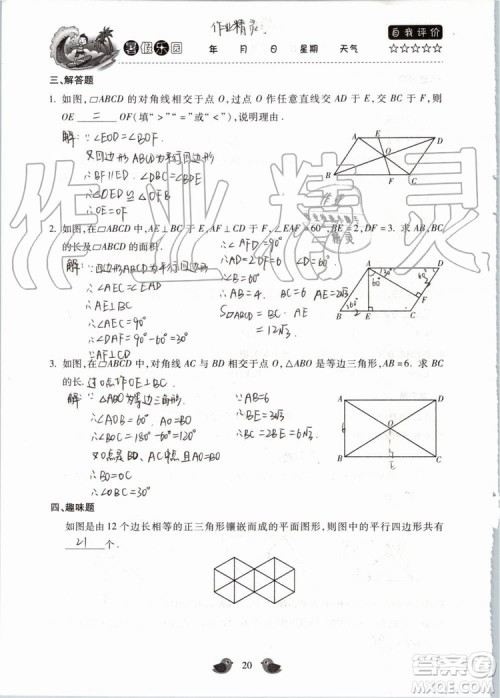 作业精灵
暑假乐园 年 月 日 星期 天气 自我评价
☆☆☆☆☆
三、解答题
1. 如图,□ABCD 的对角线相交于点 O,过点 O 作任意直线交 AD 于 E,交 BC 于 F,则
OE = OF(填“>”“=”或“<”),说明理由.
解: ∵∠EOD=∠BOF
又∵四边形ABCD为平行四边形
∴BF∥ED ∴∠OBF=∠BDE
∴△OED≌△OFB
∴OE=OF
A E D
O
B F C
2. 如图,在□ABCD 中,AE⊥BC 于 E,AF⊥DC 于 F,∠EAF=60°,BE=2,DF=3. 求 AB,BC
的长及□ABCD 的面积.
解: ∵四边形ABCD为平行四边形
∴∠AEC=∠EAD
∵AE⊥BC
∴∠AEC=90°
∴∠DAF=90°-60°=30°
∵AF⊥CD
∴∠AFD=90°
∴AD=2DF=6 ∠D=60°
∴∠B=60°
∴AB=4 BC=6 AE=2√3
S□ABCD=BC·AE=12√3
A D
F
B E C
60°
3. 如图,在□ABCD 中,对角线 AC 与 BD 相交于点 O,△ABO 是等边三角形,AB=6. 求 BC
的长. 过O点作OE⊥BC
解: ∵△ABO为等边三角形
∴∠AOB=60° AO=BO
∴∠BOC=180°-60°=120°
又∵O点是BD、AC中点
∴BO=OC
∴∠OBC=30°
∵AB=6
∴BE=3√3
∴BC=2BE=6√3
A D
O
6
B E C
四、趣味题
如图是由 12 个边长相等的正三角形镶嵌而成的平面图形,则图中的平行四边形共有
21 个.
20
作业精灵
答案圈